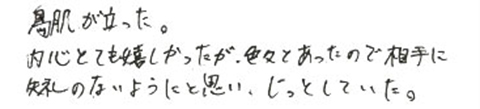 鳥肌が立った。
内心とても嬉しかったが、色々とあったので相手に
失礼のないようにと思い、じっとしていた。